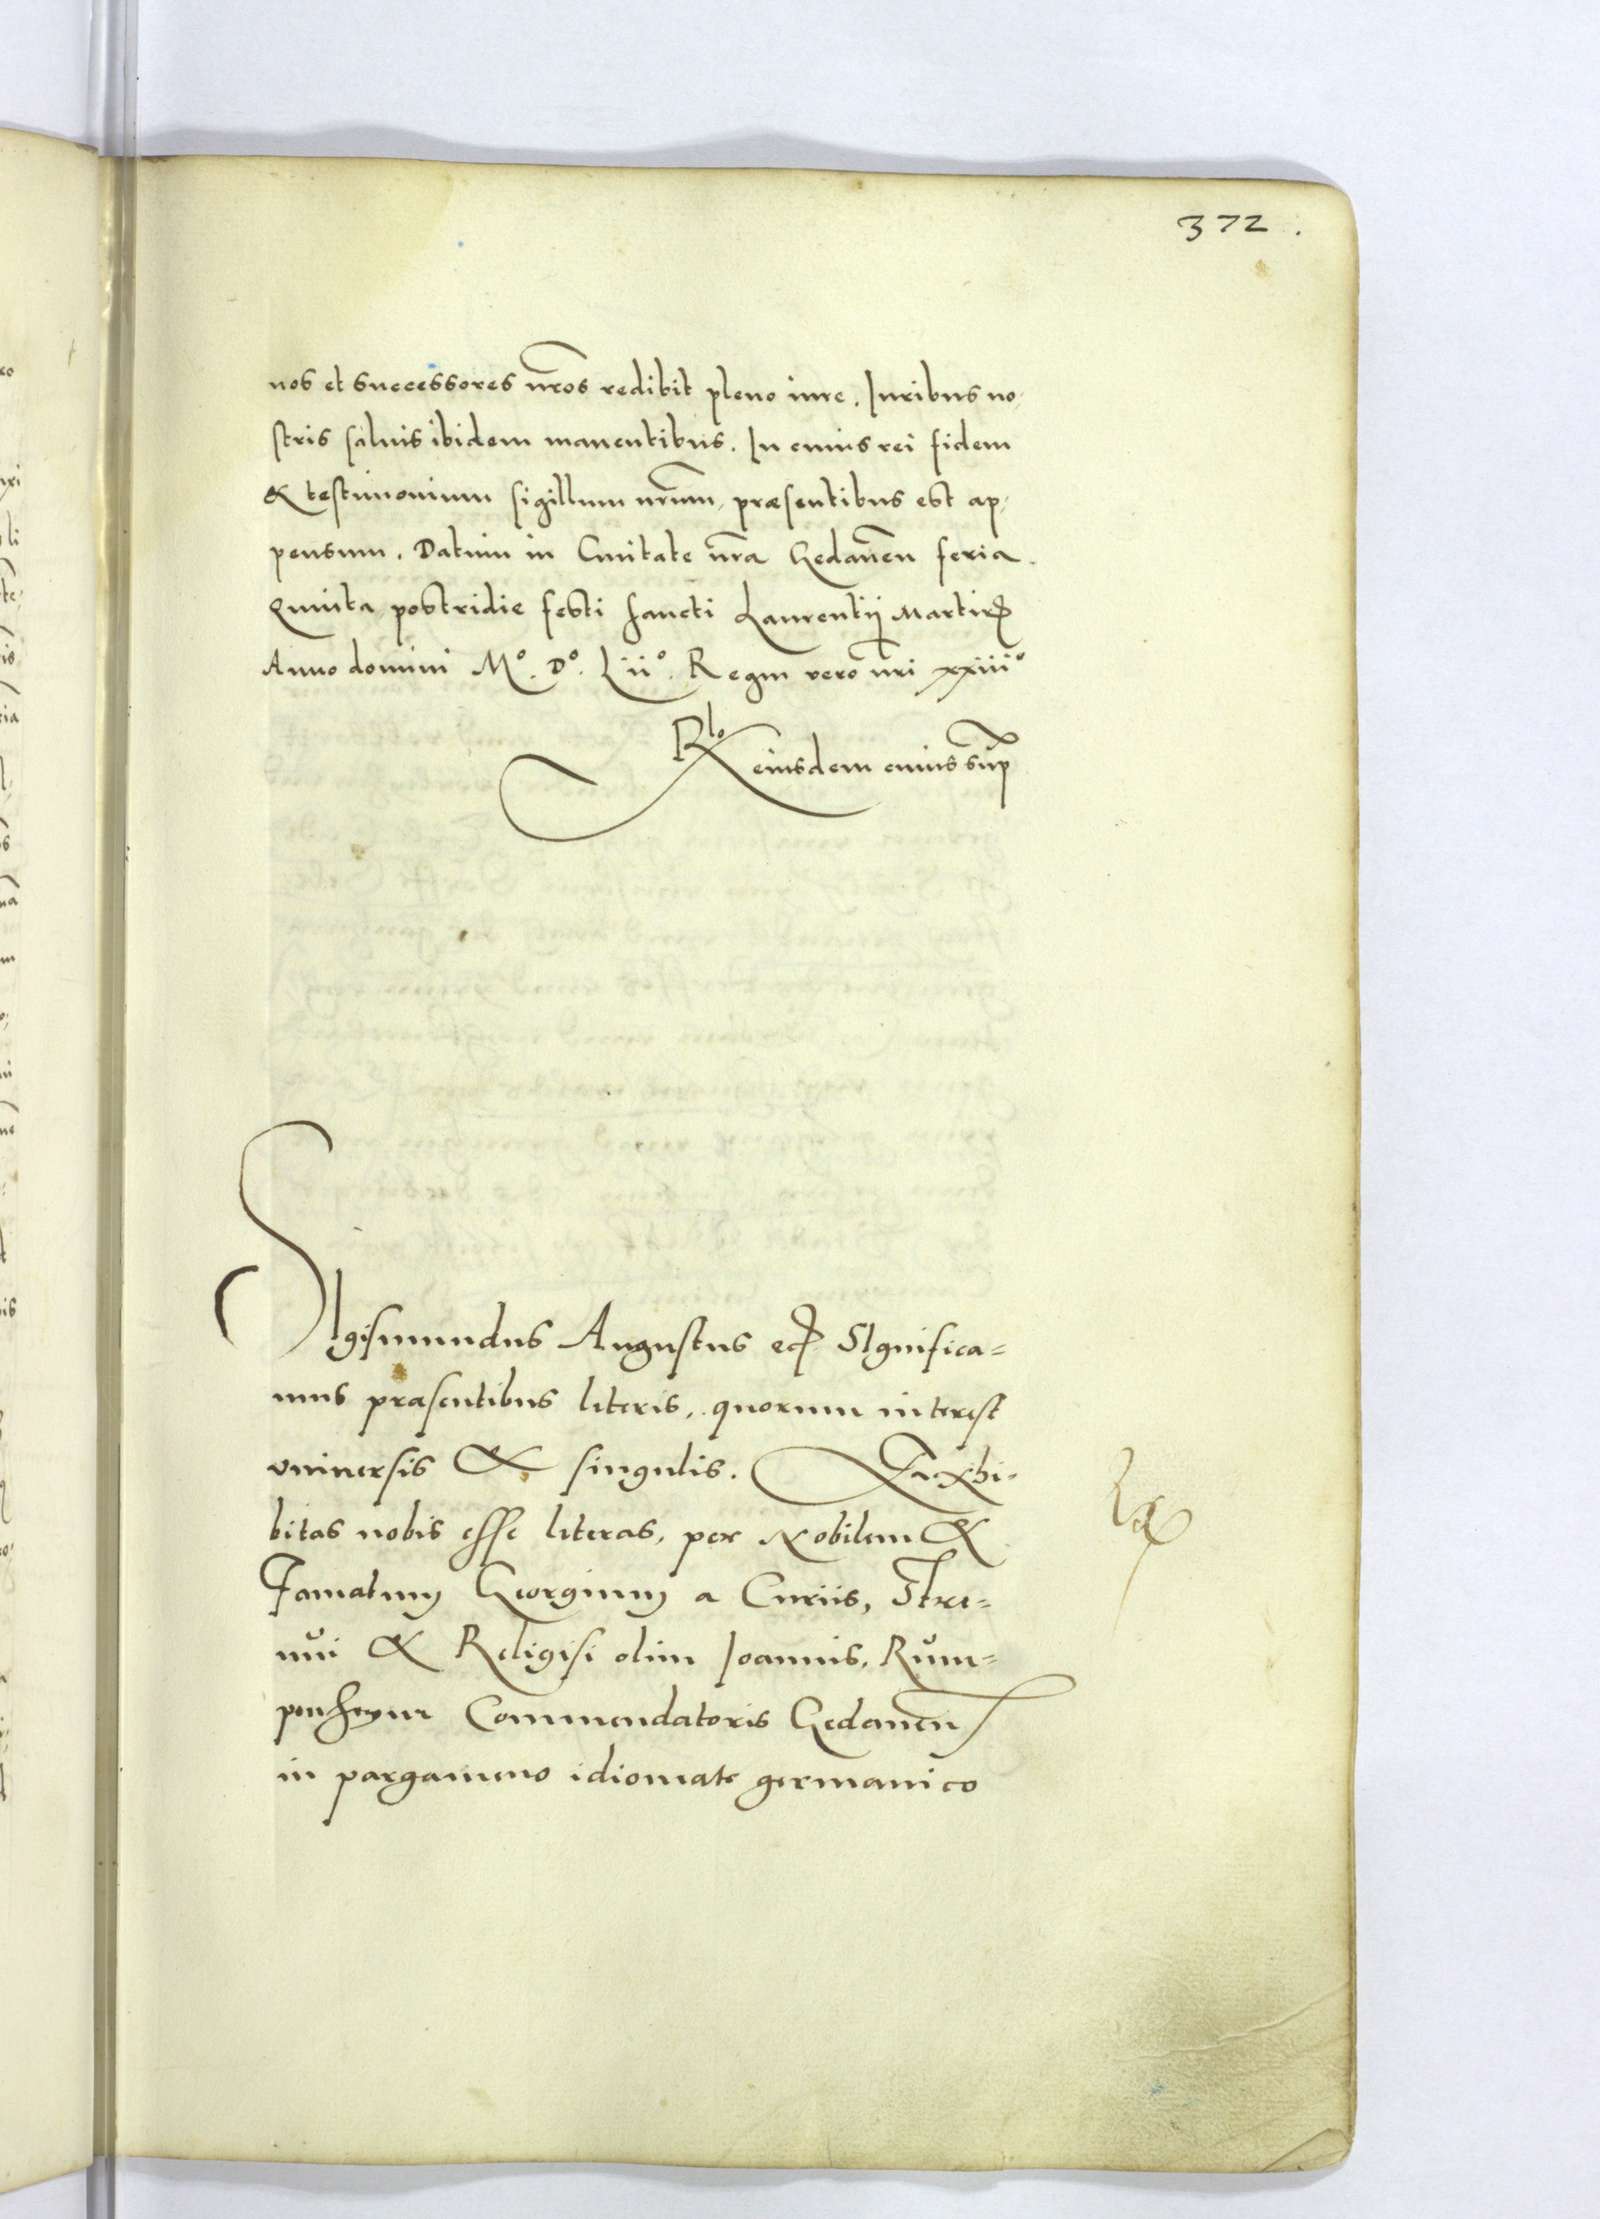 372.
nos et successores nr̃os redibit pleno iure. Iuribus no-
stris saluis ibidem manentibus. In cuius rei fidem
& testimonium sigillum nr̃um, præsentibus est ap-
pensum. Datum in Ciuitate nr̃a Gedanen̄ feria
Quinta postridie festi sancti Laurentij Martiris
Anno domini M°. D°. Lii°. Regni vero nr̃i xxiii°
Rlo eiusdem cuius sup̄
SIgismundus Augustus etc SIgnifica=
mus præsentibus literis, quorum interest
vniuersis & singulis. Exhi-
bitas nobis esse literas, per Nobilem &
Famatum Georgium a Curiis, Stre=
nui & Religisi olim Ioannis, Rum=
penheym Commendatoris Gedanen̄
in pargameno idiomate germanico